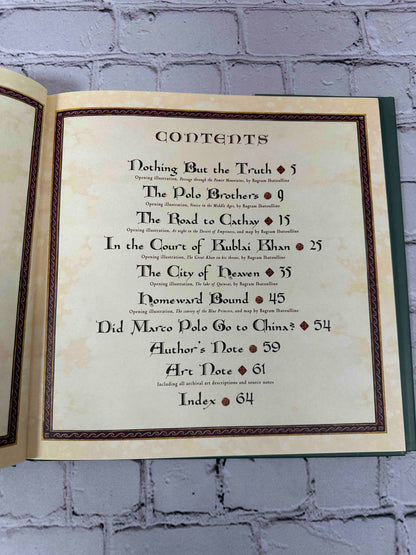 CONTENTS
Nothing But the Truth ◆ 5
Opening illustration, Passage through the Pamir Mountains, by Bagram Ibatoulline
The Polo Brothers ● 9
Opening illustration, Venice in the Middle Ages, by Bagram Ibatoulline
The Road to Cathay ◆ 15
Opening illustration, At night in the Desert of Emptiness, and map by Bagram Ibatoulline
In the Court of Kublai Khan ● 25
Opening illustration, The Great Khan in his throne, by Bagram Ibatoulline
The City of Heaven ◆ 35
Opening illustration, The lake of Quinsai, by Bagram Ibatoulline
Homeward Bound ● 45
Opening illustration, The convoy of the Blue Princess, and map by Bagram Ibatoulline
Did Marco Polo Go to China? ◆ 54
Author's Note ● 59
Art Note ◆ 61
Including all archival art descriptions and source notes
Index ● 64